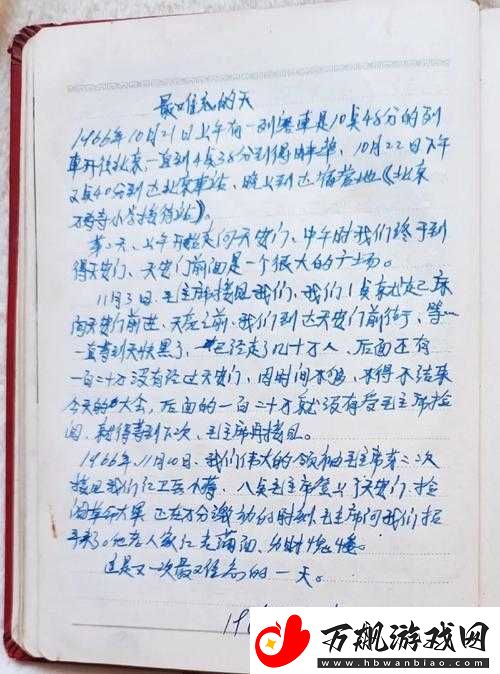 最难忘的天
1966年10月21日上午有一列客车是10点48分的列
车开往北京,一直到4点38分到得蚌埠,10月22日下午
点40分到达北京车站,晚上到达宿营地《北京
寺小学接待站》。
第二天,上午开始走向天安门,中午时我们终于到
得天安门,天安门前面是一个很大的广场。
11月3日,毛主席接见我们,我们1点就起床
向天安门前进,天亮之前,我们到达天安门前,等…
一直等到天快黑了,已经走了几十万人,后面还有
一百二十万没有经过天安门,因时间不够,不得不结束
今天的大会,后面的一百二十万就没有受毛主席检
阅,就得等到下次,毛主席再接见。
1966年11月10日,我们伟大的领袖毛主席第二次
接见我们红卫兵小将,八点毛主席登上了天安门,检
阅革命大军,正在万分激动的时刻,毛主席向我们招
手了。他老人家红光满面,
这是又一次最难忘的一天。
万飙游戏网
www.hbwanbiao.com